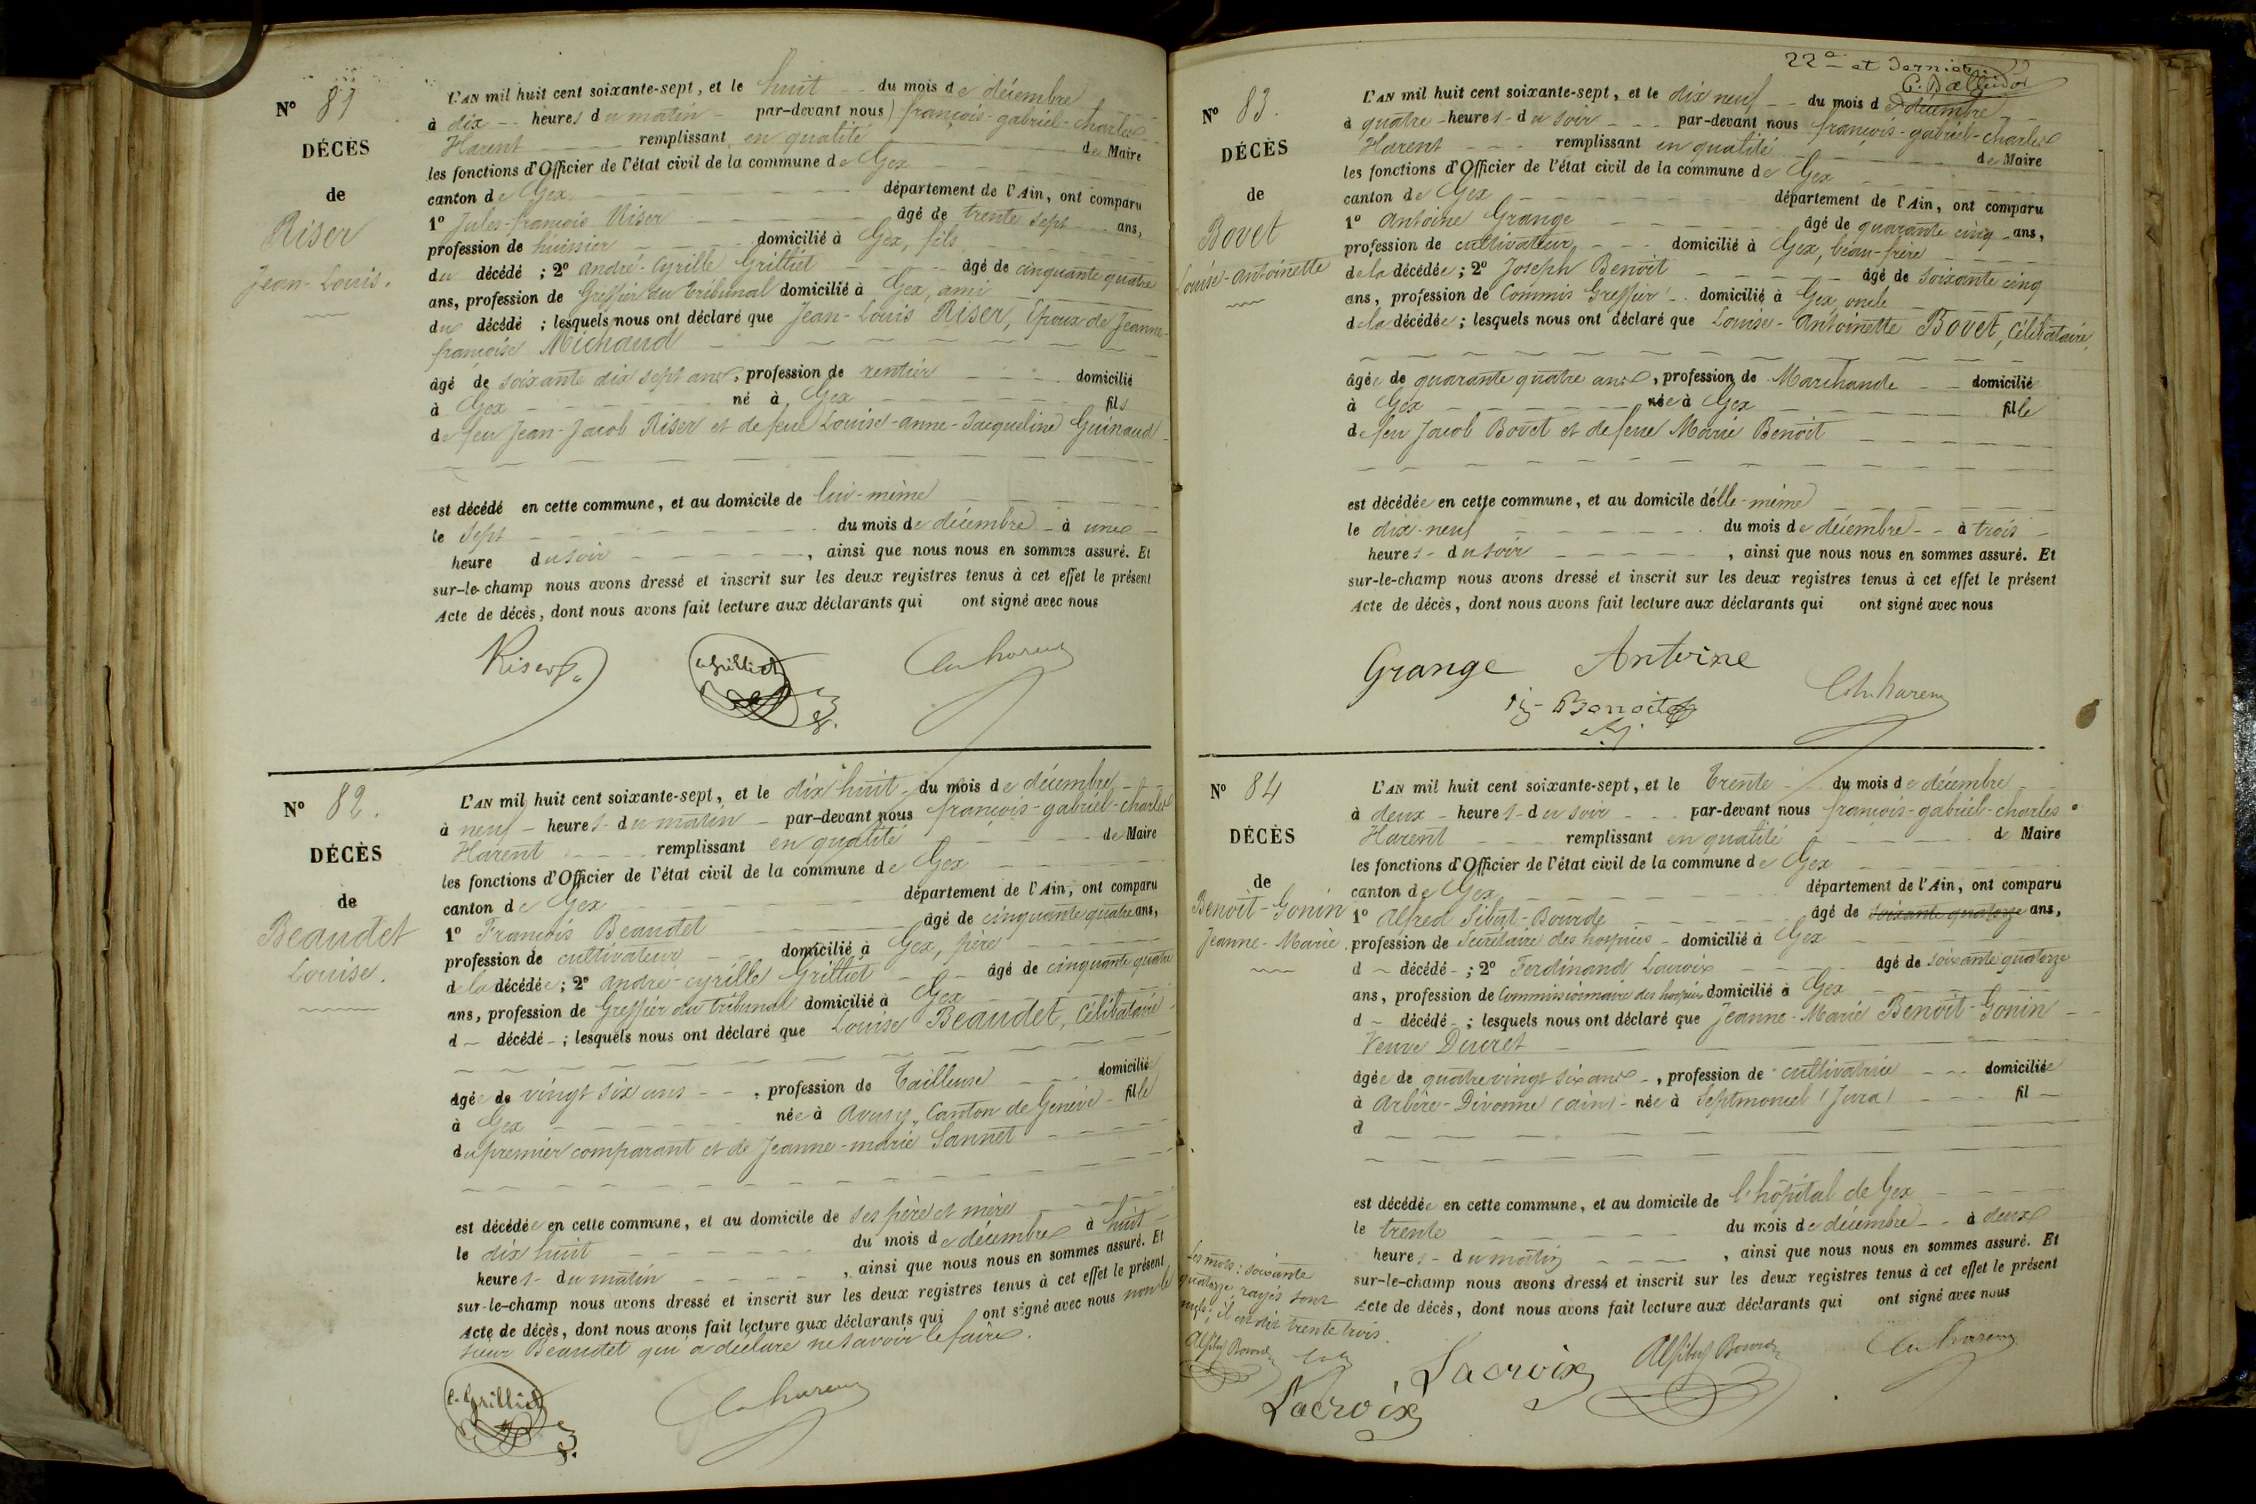 N° 81
DÉCÈS
de
Riser
Jean-Louis.
L'AN mil huit cent soixante-sept, et le huit du mois de décembre
à dix heures du matin par-devant nous françois-gabriel-charles
Harent remplissant en qualité de Maire
les fonctions d'Officier de l'état civil de la commune de Gex
canton de Gex département de l'Ain, ont comparu
1° Jules-françois Riser âgé de trente sept ans,
profession de huissier domicilié à Gex, fils
du décédé ; 2° andré-Cyrille Grilliet âgé de cinquante quatre
ans, profession de Greffier du tribunal domicilié à Gex, ami
du décédé ; lesquels nous ont déclaré que Jean-Louis Riser, Epoux de Jeanne-
françoise Michaud
âgé de soixante dix sept ans, profession de rentier domicilié
à Gex né à Gex fils
de feu Jean-Jacob Riser et de feue Louise-anne-Jacqueline Guinand
est décédé en cette commune, et au domicile de lui-même
le sept du mois de décembre à une
heure du soir, ainsi que nous nous en sommes assuré. Et
sur-le-champ nous avons dressé et inscrit sur les deux registres tenus à cet effet le présent
Acte de décès, dont nous avons fait lecture aux déclarants qui ont signé avec nous
Riser C. Grilliet Ch. harent
N° 82.
DÉCÈS
de
Beaudet
Louise.
L'AN mil huit cent soixante-sept, et le dix huit du mois de décembre
à neuf heures du matin par-devant nous françois-gabriel-charles
Harent remplissant en qualité de Maire
les fonctions d'Officier de l'état civil de la commune de Gex
canton de Gex département de l'Ain, ont comparu
1° François Beaudet âgé de cinquante quatre ans,
profession de cultivateur domicilié à Gex, père
de la décédée ; 2° andré-cyrille Grilliet âgé de cinquante quatre
ans, profession de Greffier du tribunal domicilié à Gex
d décédé ; lesquels nous ont déclaré que Louise Beaudet, Célibataire
âgée de vingt six ans, profession de Tailleuse domiciliée
à Gex née à Avusy, Canton de Genève fille
du premier comparant et de Jeanne-marie Sannet
est décédée en cette commune, et au domicile de ses père et mère
le dix huit du mois de décembre à huit
heures du matin, ainsi que nous nous en sommes assuré. Et
sur-le-champ nous avons dressé et inscrit sur les deux registres tenus à cet effet le présent
Acte de décès, dont nous avons fait lecture aux déclarants qui ont signé avec nous non le
sieur Beaudet qui a déclaré ne savoir le faire.
C. Grilliet Ch. harent
22e et dernier
N° 83.
DÉCÈS
de
Bovet
Louise-antoinette
L'AN mil huit cent soixante-sept, et le dix neuf du mois de décembre
à quatre heures du soir par-devant nous françois-gabriel-charles
Harent remplissant en qualité de Maire
les fonctions d'Officier de l'état civil de la commune de Gex
canton de Gex département de l'Ain, ont comparu
1° Antoine Grange âgé de quarante cinq ans,
profession de cultivateur domicilié à Gex, beau-frère
de la décédée ; 2° Joseph Benoit âgé de soixante cinq
ans, profession de Commis Greffier domicilié à Gex, oncle
de la décédée ; lesquels nous ont déclaré que Louise-Antoinette Bovet, Célibataire,
âgée de quarante quatre ans, profession de Marchande domicilié
à Gex née à Gex fille
de feu Jacob Bovet et de feue Marie Benoit
est décédée en cette commune, et au domicile d'elle-même
le dix-neuf du mois de décembre à trois
heures du soir, ainsi que nous nous en sommes assuré. Et
sur-le-champ nous avons dressé et inscrit sur les deux registres tenus à cet effet le présent
Acte de décès, dont nous avons fait lecture aux déclarants qui ont signé avec nous
Grange Antoine
Benoit Ch. harent
N° 84
DÉCÈS
de
Benoit-Gonin
Jeanne-Marie
L'AN mil huit cent soixante-sept, et le trente du mois de décembre
à deux heures du soir par-devant nous françois-gabriel-charles
Harent remplissant en qualité de Maire
les fonctions d'Officier de l'état civil de la commune de Gex
canton de Gex département de l'Ain, ont comparu
1° Alfred Sibut-Bourde âgé de soixante quatorze ans,
profession de Secrétaire des hospices domicilié à Gex
d décédé ; 2° Ferdinand Lacroix âgé de soixante quatorze
ans, profession de Commissionnaire des hospices domicilié à Gex
d décédé ; lesquels nous ont déclaré que Jeanne-Marie Benoit-Gonin
Veuve Duret
âgée de quatre vingt six ans, profession de cultivatrice domiciliée
à Arbère-Divonne (ain) née à Septmoncel (Jura) fil
d
est décédée en cette commune, et au domicile de l'hôpital de Gex
le trente du mois de décembre à deux
heures du matin, ainsi que nous nous en sommes assuré. Et
sur-le-champ nous avons dressé et inscrit sur les deux registres tenus à cet effet le présent
Acte de décès, dont nous avons fait lecture aux déclarants qui ont signé avec nous
Les mots : soixante
quatorze, rayés sont
nuls ; il est dit trente trois.
Lacroix
Lacroix Alf Sibut Bourde Ch. harent